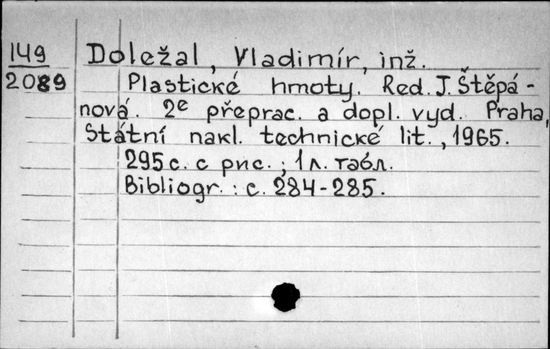 149
2089
Doležal, Vladimír, inž.
Plastické hmoty. Red. J. Štěpá-
nová. 2e přeprac. a dopl. vyd. Praha,
Státní nakl. technické lit., 1965.
295 c. с рис.; 1 л. табл.
Bibliogr.: с. 284-285.